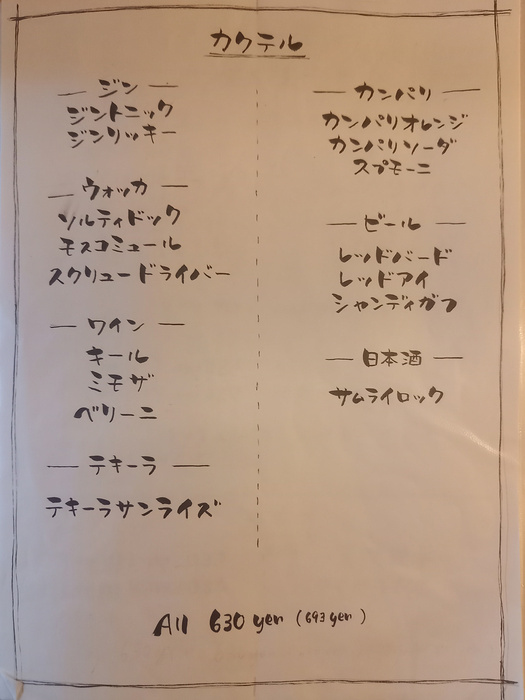 カクテル
ジン
ジントニック
ジンリッキー
ウォッカ
ソルティドック
モスコミュール
スクリュードライバー
ワイン
キール
ミモザ
ベリーニ
テキーラ
テキーラサンライズ
カンパリ
カンパリオレンジ
カンパリソーダ
スプモーニ
ビール
レッドバード
レッドアイ
シャンディガフ
日本酒
サムライロック
All 630 yen (693 yen)